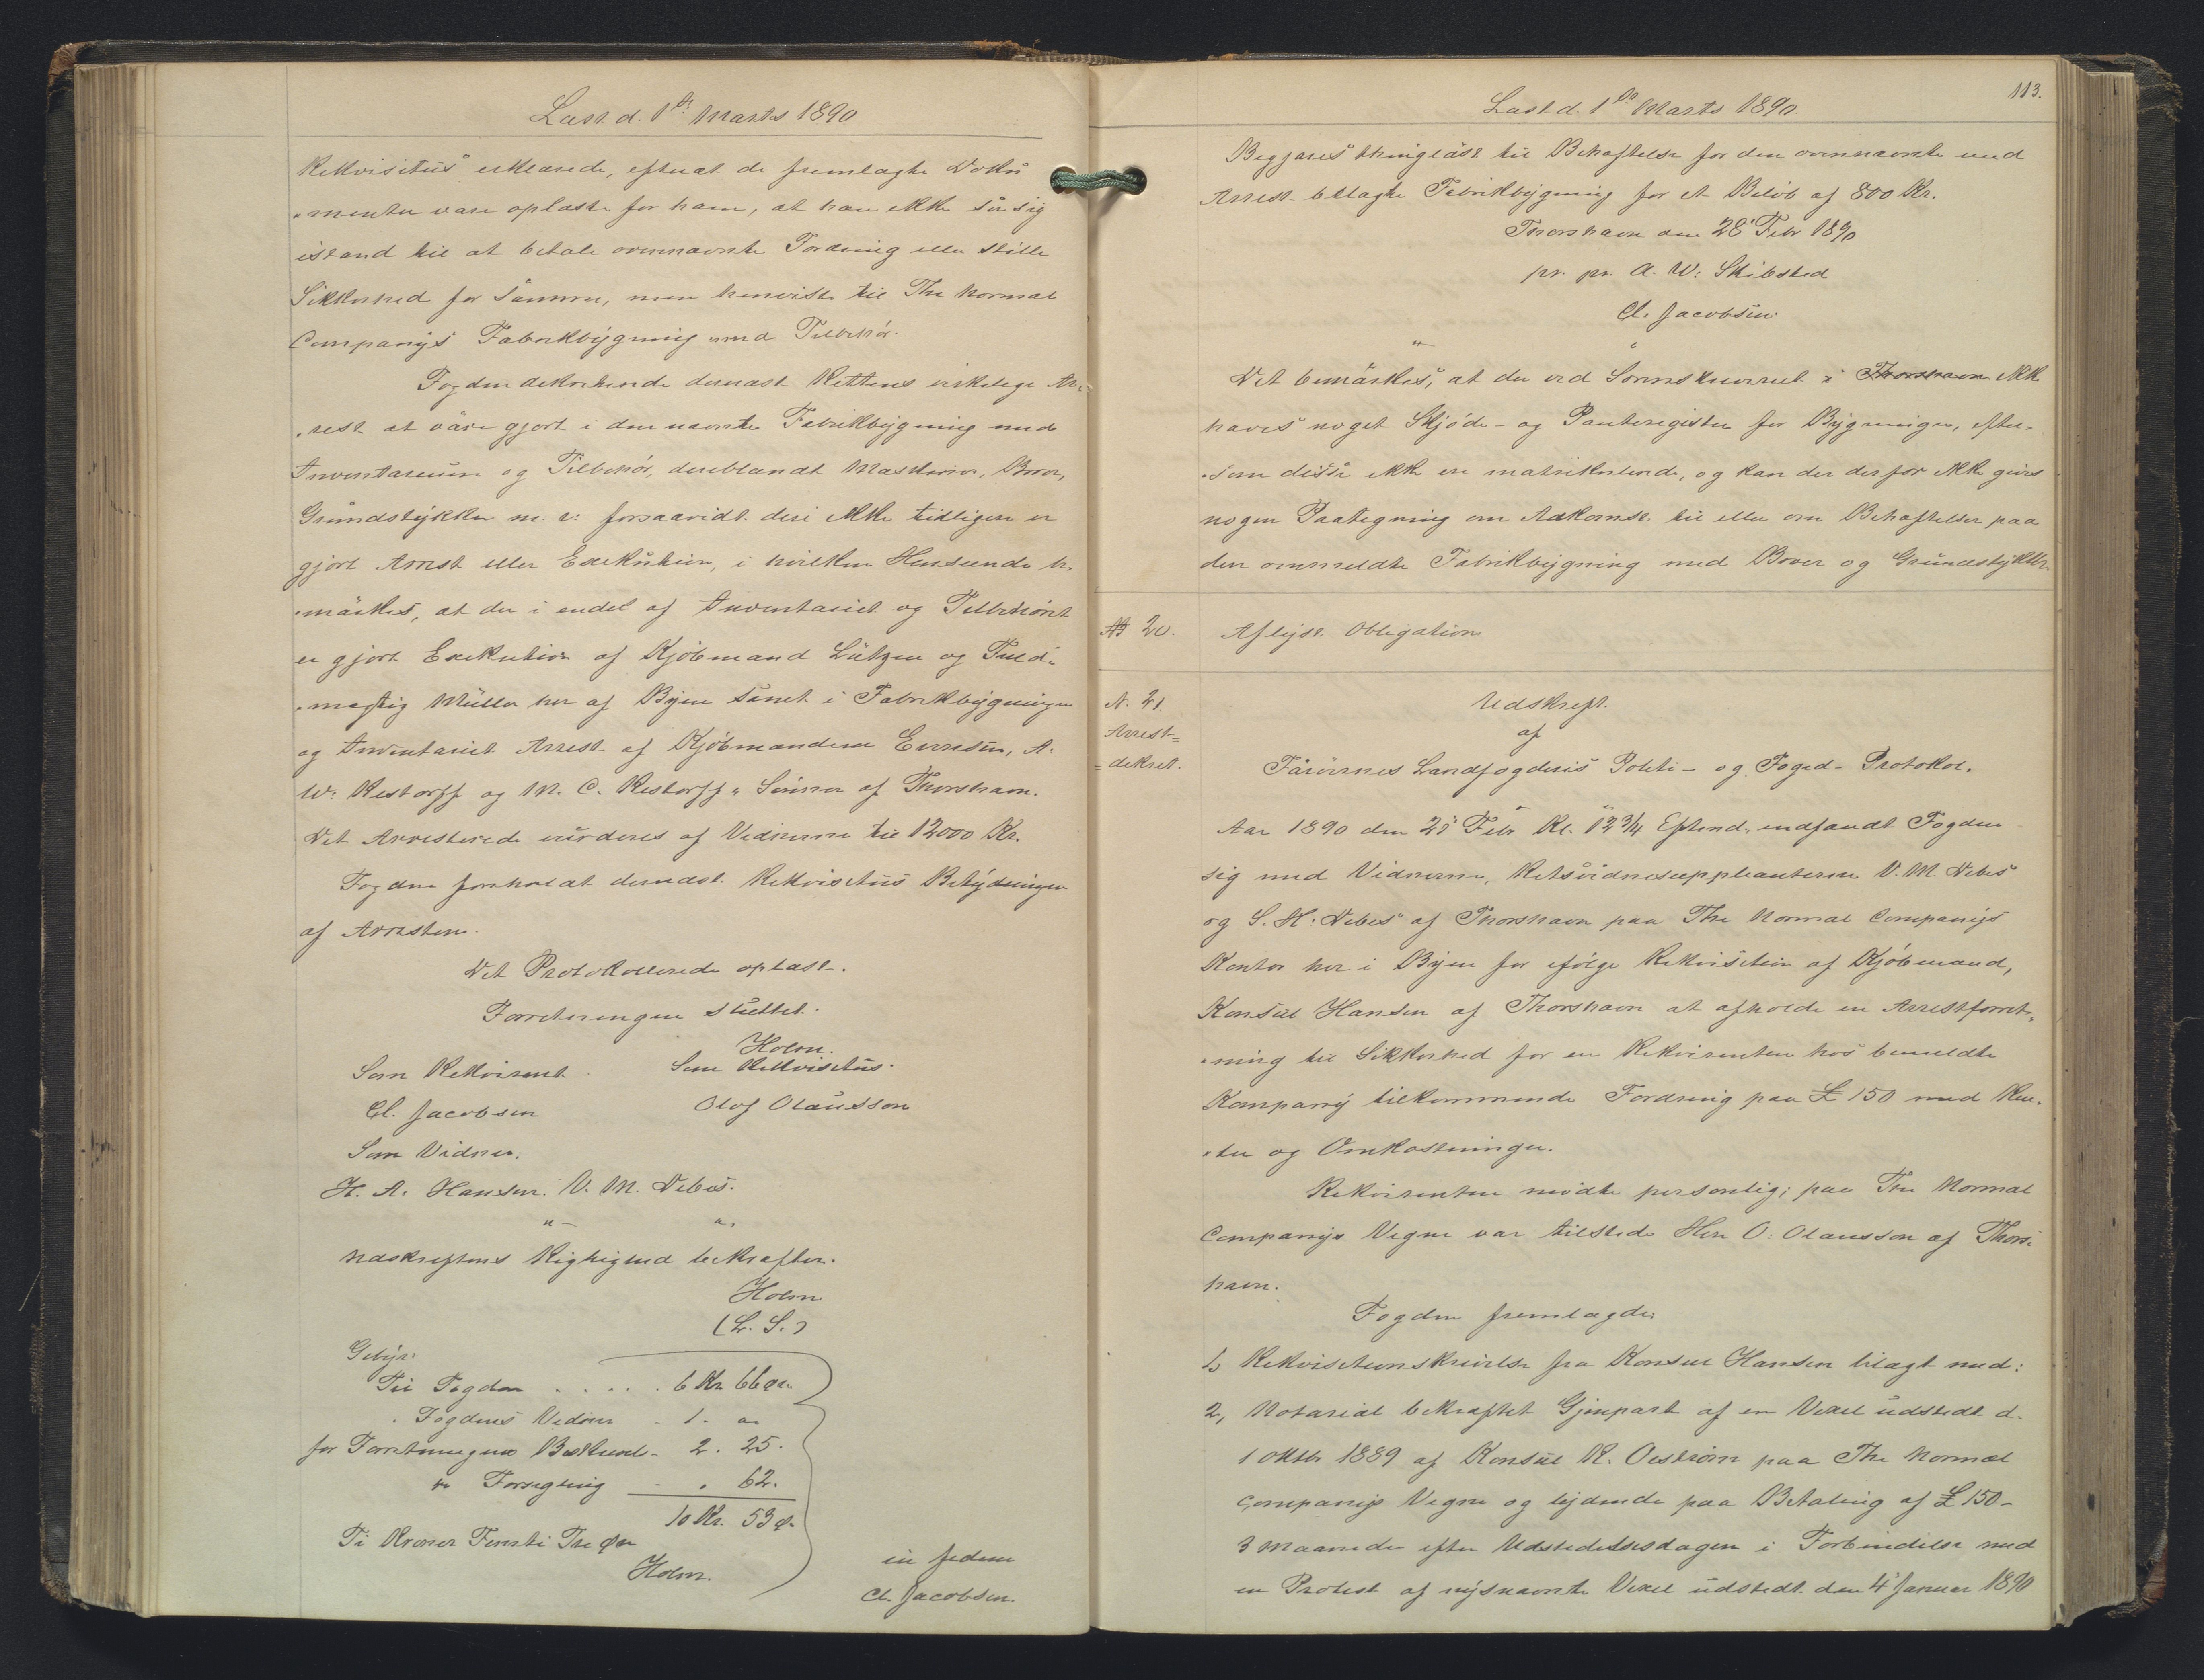 Læst d. 1ste Marts 1890
Rekvisitus erklærede, efterat de fremlagte Doku
„menter vare oplæste for ham, at han ikke saa sig
istand til at betale ovennævnte Fordring eller stille
Sikkerhed for samme, men henviste til The Normal
Companys Fabrikbygning med Tilbehør.
Fogden dekreterede dernæst Rettens virkelige Ar„
„rest at være gjort i den nævnte Fabrikbygning med
Inventarium og Tilbehør, deriblandt Maskiner, Broer,
Grundstykker m. v: forsaavidt deri ikke tidligere er
gjort Arrest eller Exekution, i hvilken Henseende be„
„mærkes, at der i endel af Inventariet og Tilbehøret
er gjort Exekution af Kjøbmand Lützen og Fuld„
„mægtig Müller her af Byen samt i Fabrikbygningen
og Inventariet Arrest af Kjøbmændene Evensen, A.
W: Restorff og M. C. Restorff & Sønner af Thorshavn.
Det Arresterede vurderes af Vidnerne til 12000 Kr.
Fogden foreholdt dernæst Rekvisitus Betydningen
af Arresten.
Det Protokollerede oplæst.
Forretningen sluttet.
Holm.
Som Rekvirent. Som Rekvisitus.
Cl. Jacobsen Olof Olausson
Som Vidner.
H. A. Hansen. V. M. Debes.
„ — „
Udskriftens Rigtighed bekræfter.
Holm
(L. S.)
Gebyr:
Til Fogden . . . . . 6 Kr 66 Øre
„ Fogdens Vidner - 1 - „
for Forretningens Beskrivelse - 2. 25.
„ Forsegling - „ 62.
10 Kr. 53 Ø.
Ti Kroner Femti Tre Øre
Holm.
in fidem
Cl. Jacobsen.
113.
Læst d. 1ste Marts 1890.
Begjæres thinglæst til Behæftelse for den ovennævnte med
Arrest belagte Fabrikbygning for et Beløb af 800 Kr.
Thorshavn den 28' Febr 1890
pr. pr. A. W: Skibsted
Cl. Jacobsen.
„ „
Det bemærkes, at der ved Sorenskriveriet i Thorshavn ikke
haves noget Skjøde- og Panteregister for Bygninger, efter„
„som disse ikke ere matrikulerede, og kan der derfor ikke gives
nogen Paategning om Adkomst til eller om Behæftelser paa
den ommeldte Fabrikbygning med Broer og Grundstykker.
N 20. Aflyst Obligation
N. 21 Arrest= =dekret.
Udskrift
af
Færøernes Landfogderis Politi- og Foged-Protokol.
Aar 1890 den 25' Febr Kl. 12 3/4 Eftmd. indfandt Fogden
sig med Vidnerne, Retsvidnesuppleanterne V. M. Debes
og S. H: Debes af Thorshavn paa The Normal Companys
Kontor her i Byen for ifølge Rekvisition af Kjøbmand,
Konsul Hansen af Thorshavn at afholde en Arrestforret„
„ning til Sikkerhed for en Rekvirenten hos bemeldte
Kompany tilkommende Fordring paa £ 150 med Ren„
„ter og Omkostninger.
Rekvirenten mødte personlig; paa The Normal
Companys Vegne var tilstede Herr O: Olausson af Thors„
havn.
Fogden fremlagde:
1, Rekvisitionskrivelse fra Konsul Hansen bilagt med:
2, Notarial bekræftet Gjenpart af en Vexel udstedt d.
1 Oktbr 1889 af Konsul R. Oeström paa The Normal
Companys Vegne og lydende paa Betaling af £ 150 -
3 Maaneder efter Udstedelsesdagen i Forbindelse med
en Protest af nysnævnte Vexel udstedt den 4' Januar 1890